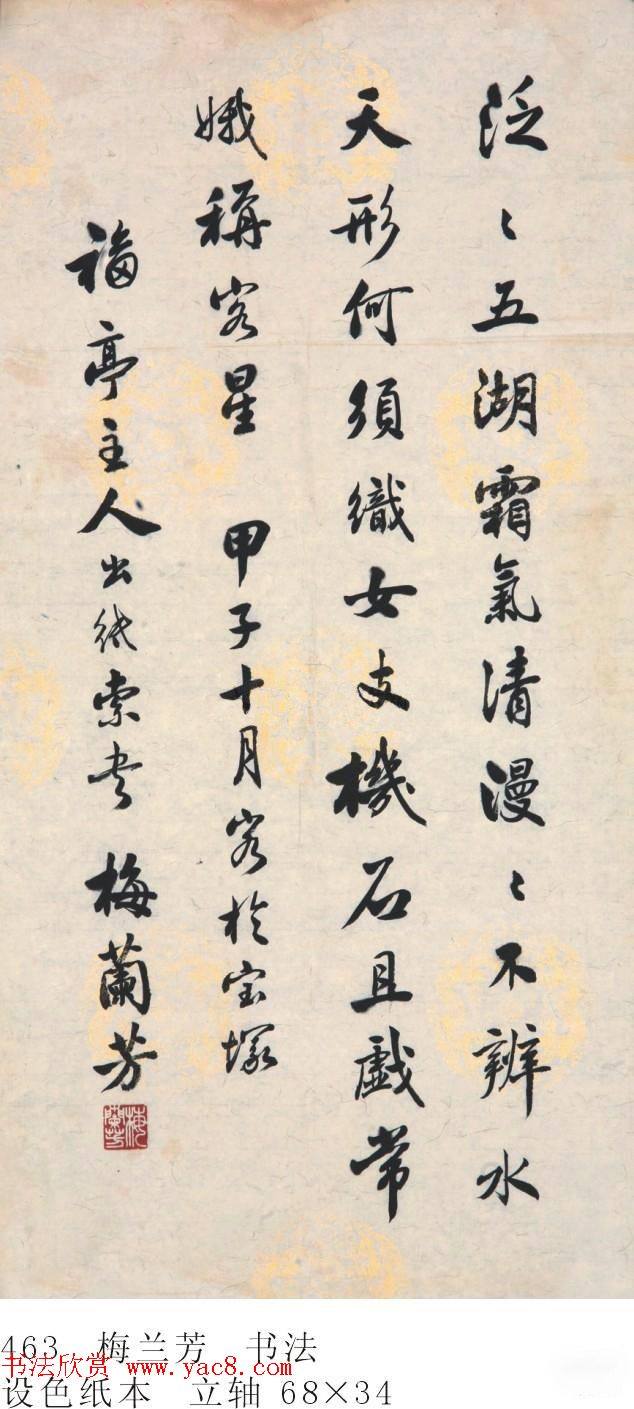 泛〻五湖霜氣清漫〻不辨水
天形何須織女支機石且戲常
娥稱客星 甲子十月客於宝塚
福亭主人出紙索書 梅蘭芳
梅蘭芳
463 梅兰芳 书法
书法欣赏 www.yac8.com
设色纸本 立轴 68×34